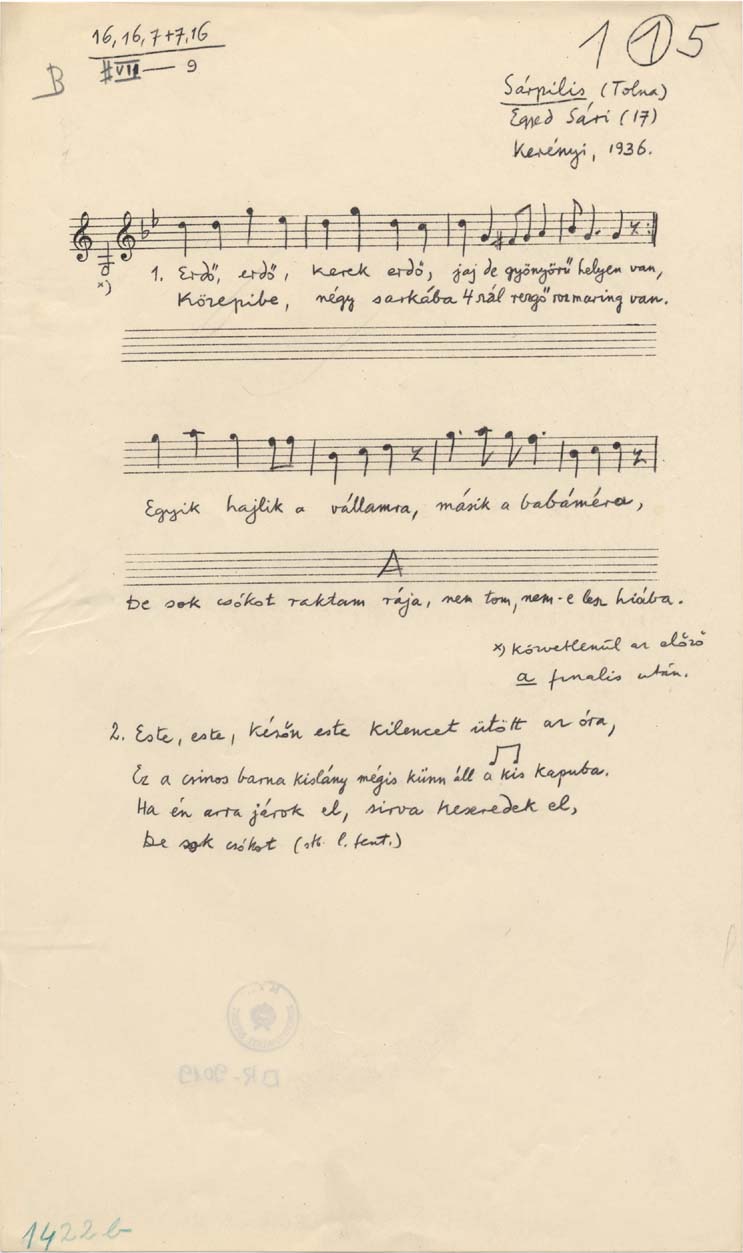 16, 16, 7+7, 16
#VII — 9
B
1 1 5
Sárpilis (Tolna)
Egyed Sári (17)
Kerényi, 1936.
x)
1. Erdő, erdő, kerek erdő, jaj de gyönyörű helyen van,
Közepibe, négy sarkába 4 szál rezgő rozmaring van.
Egyik hajlik a vállamra, másik a babáméra,
A
De sok csókot raktam rája, nem tom, nem-e lesz hiába.
x) Közvetlenül az előző
a finalis után.
2. Este, este, későn este kilencet ütött az óra,
Ez a csinos barna kislány mégis künn áll a kis kapuba.
Ha én arra járok el, sirva keseredek el,
De sok csókot (stb. l. fent.)
DR-9019
1422b